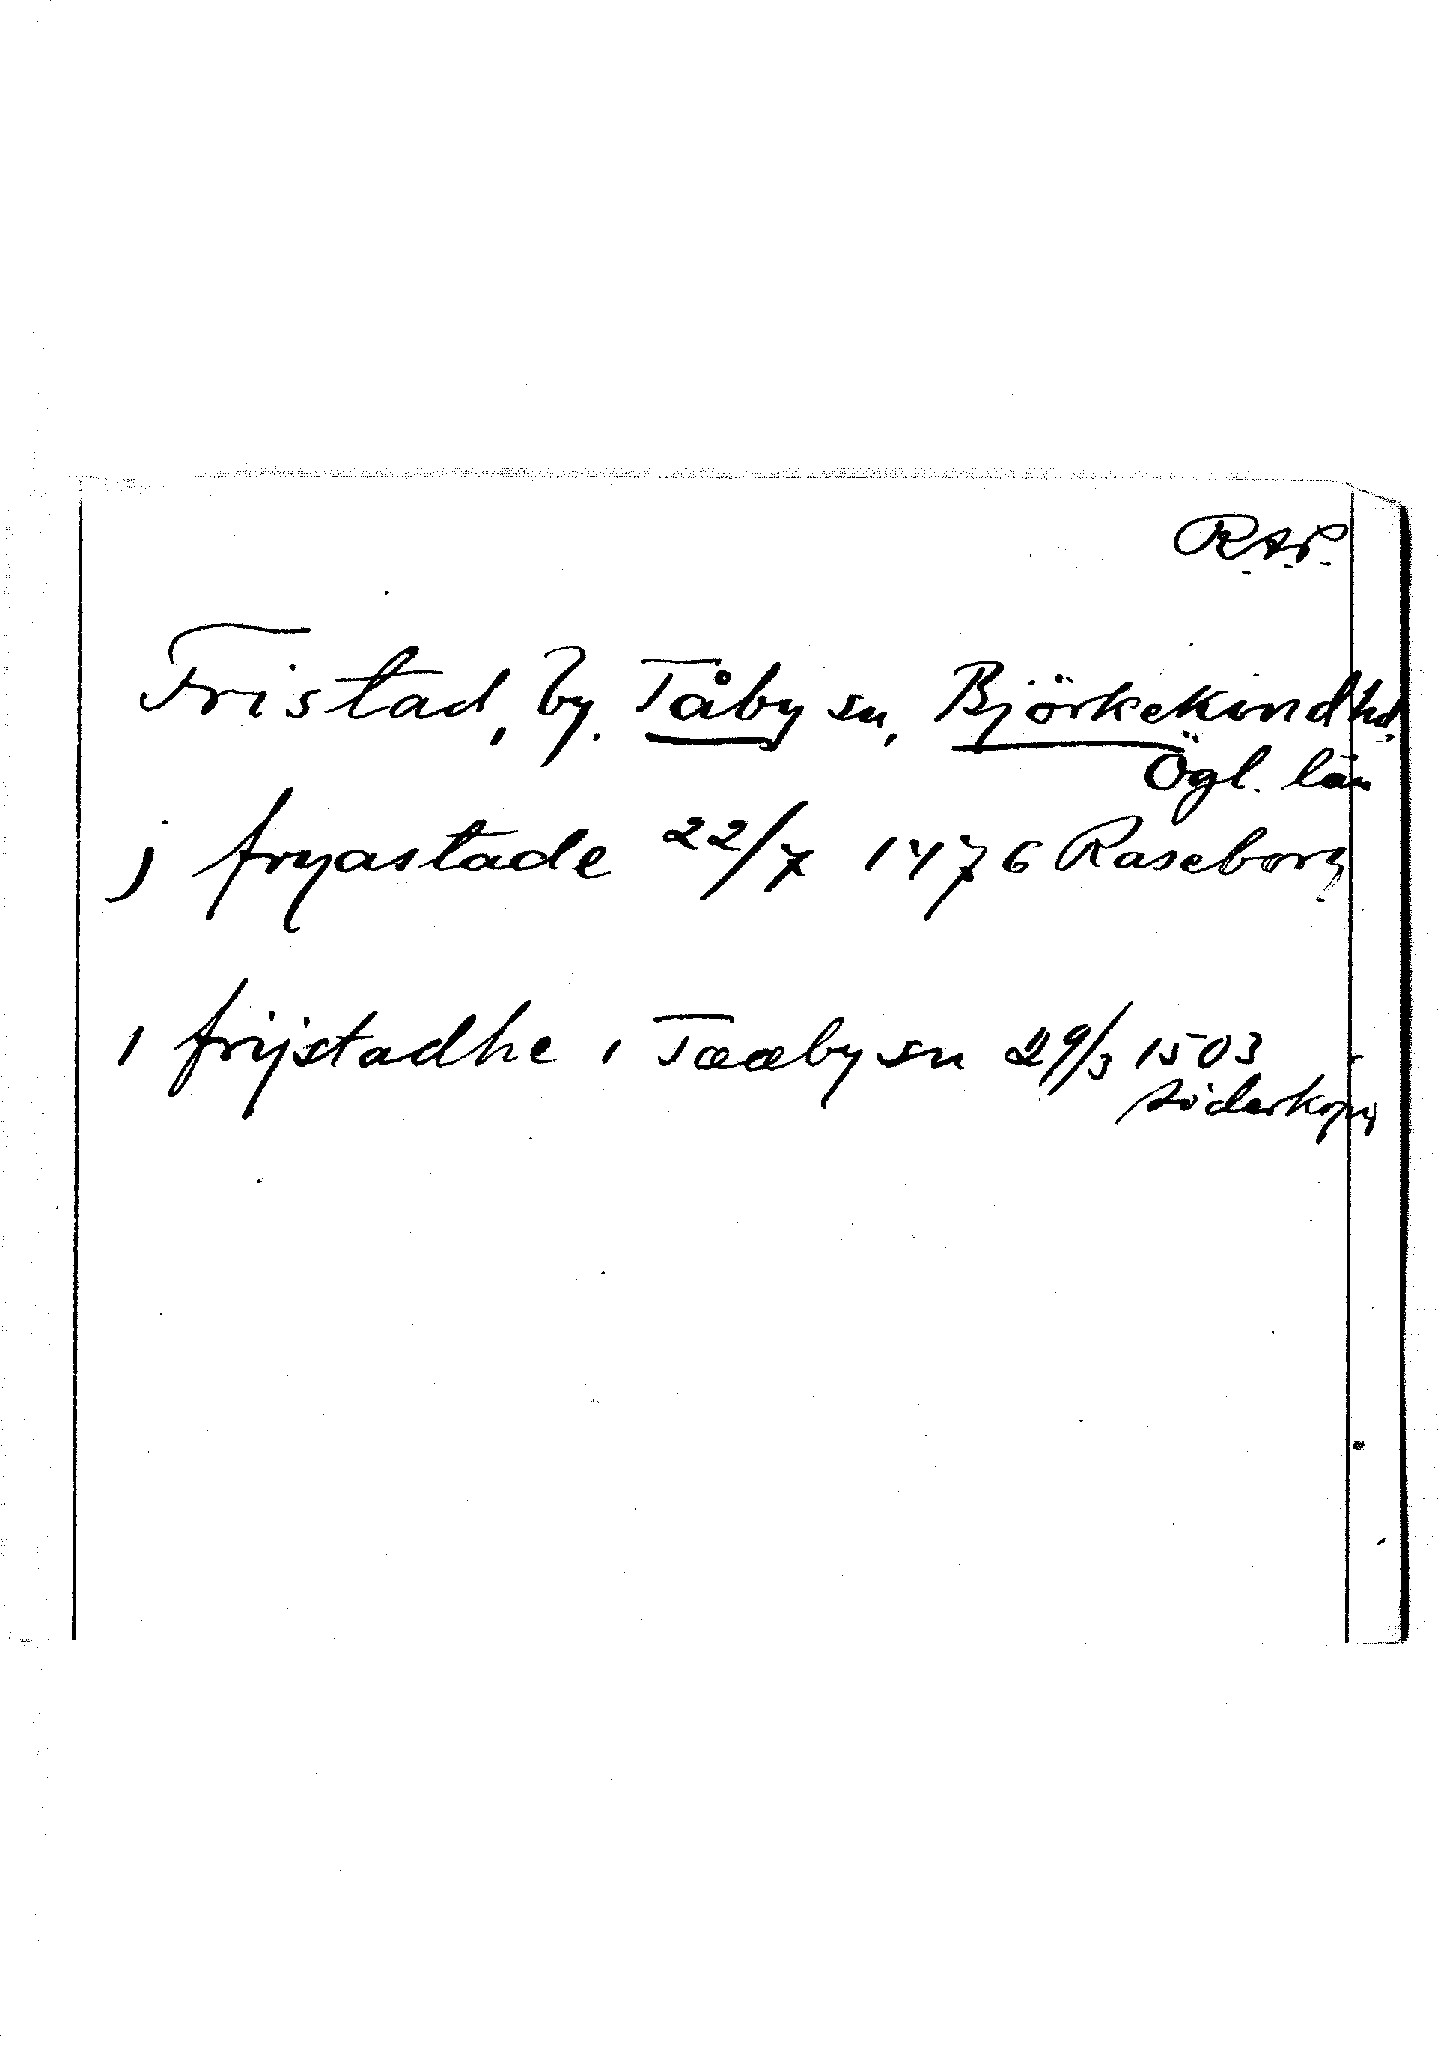 R.A.P.
Fristad, by. Tåby sn, Björkekind hd.
Ögl. län
j fryastade 22/7 1476 Raseborg
i frijstadhe i Taaby sn 29/3 1503
Söderköping